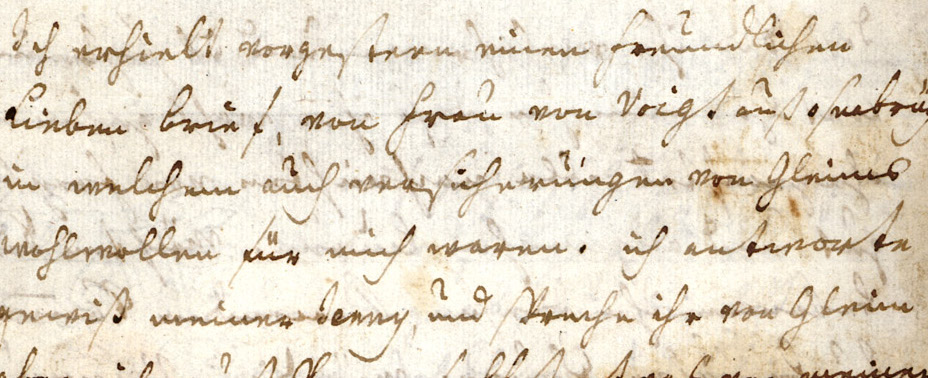 Ich erhielt vorgestern einen freundlichen
Lieben brief, von frau von Voigt auß osnabrüg
in welchem auch versicherungen von Gleims
wohlwollen für mich waren. ich antworte
gewiß meiner Jenny, und spreche ihr von Gleim